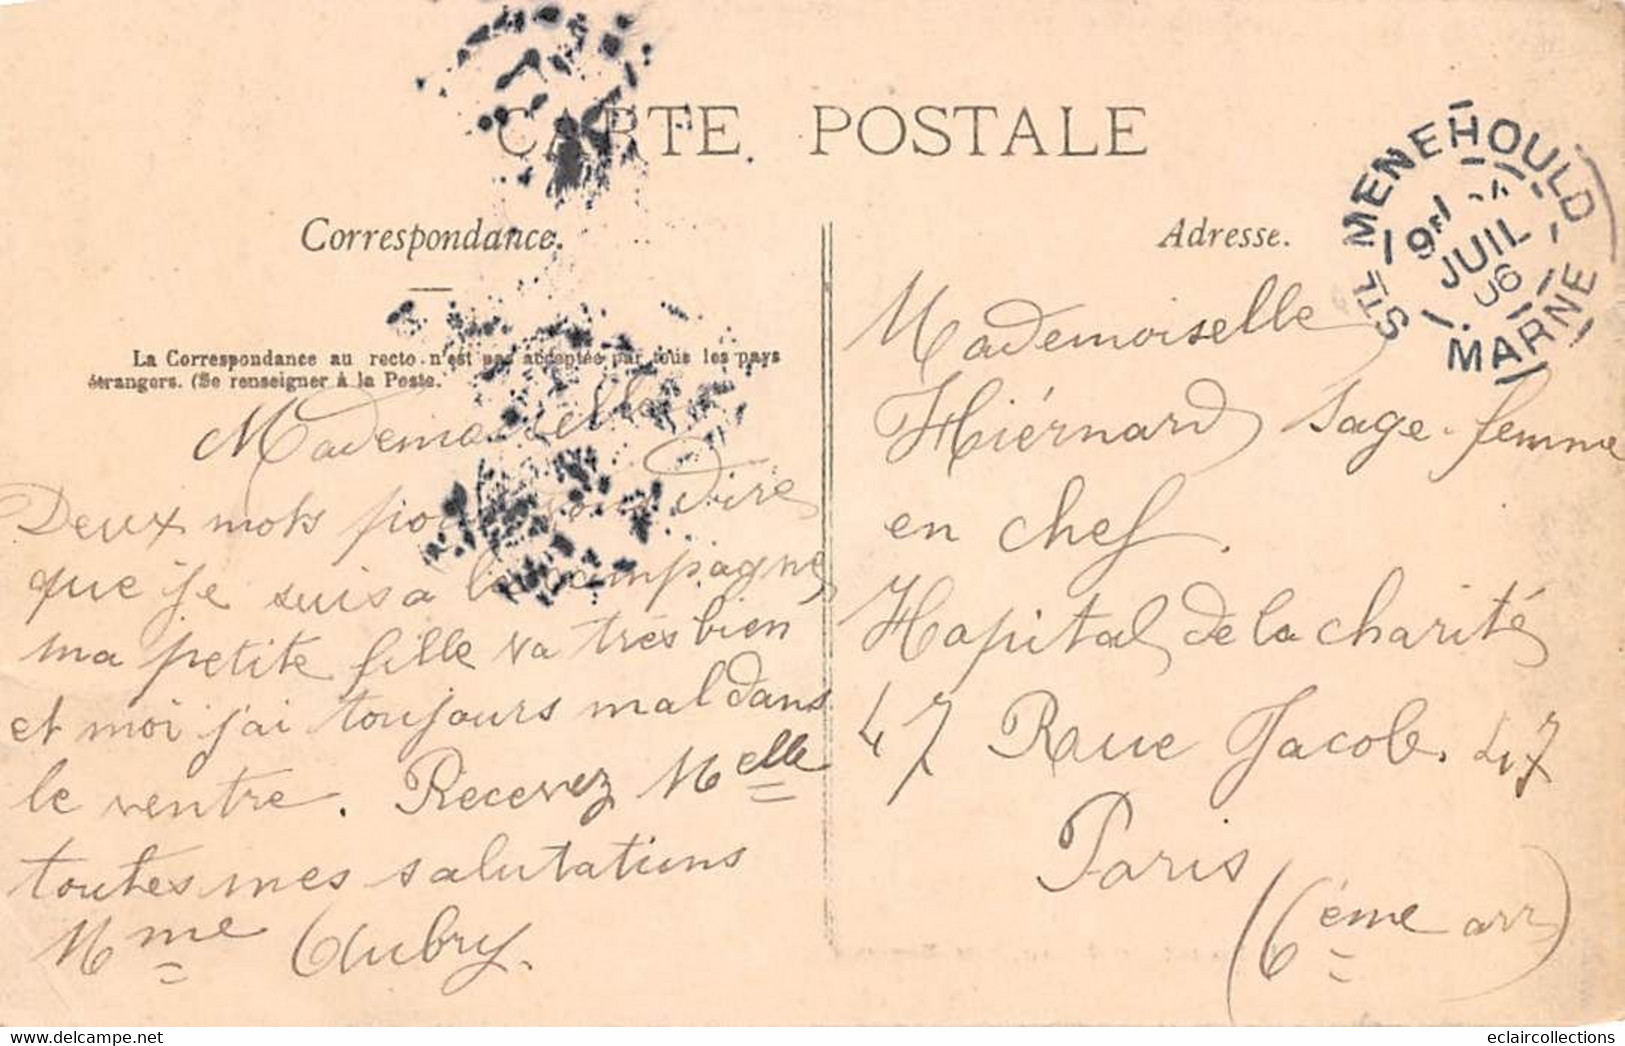 CARTE POSTALE
Correspondance.
La Correspondance au recto n'est pas acceptée par tous les pays
étrangers. (Se renseigner à la Poste.
Mademoiselle
Deux mots pour vous dire
que je suis a la campagne
ma petite fille va très bien
et moi j'ai toujours mal dans
le ventre. Recevez Melle
toutes mes salutations
Mme Aubry.
Adresse.
STE MENEHOULD
JUIL
06
MARNE
Mademoiselle
Hiérnard sage-femme
en chef.
Hopital de la charité
47 Rue Jacob. 47
Paris
(6ème arr)
eclaircollections